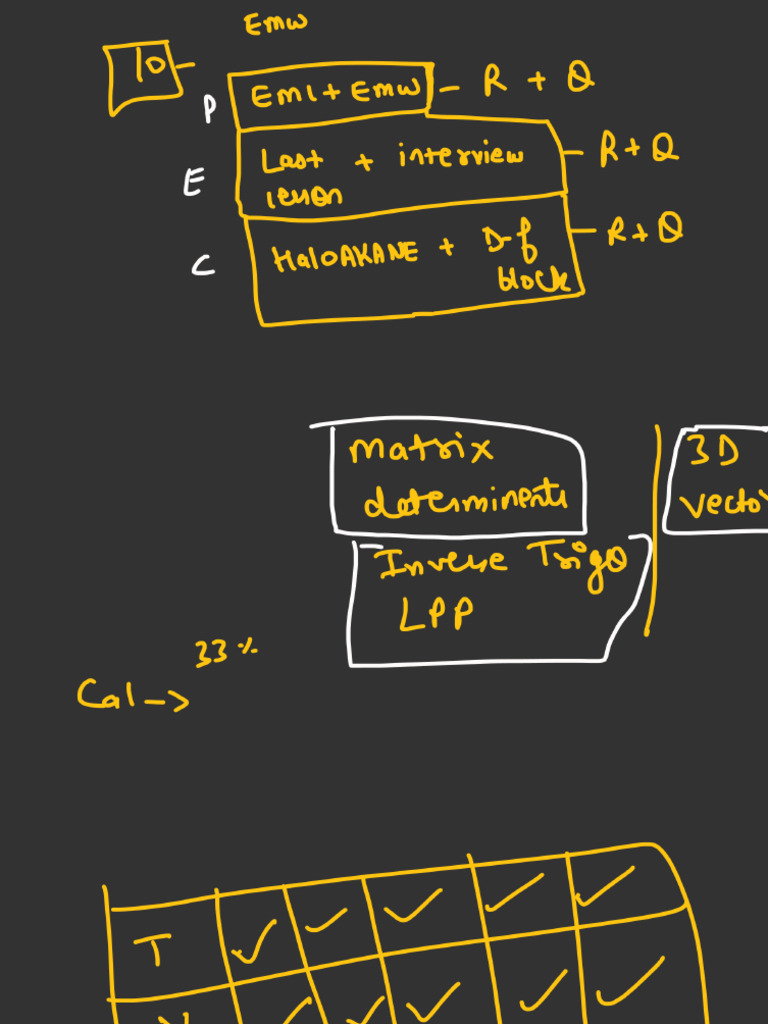 Emw
10 -
P EMI + EMW - R + Q
E Last + interview - R + Q
lesson
C HaloAKANE + D-f - R + Q
block
Matrix
determinents
3D
Inverse Trigo
LPP
33 %
Cal ->
T ✓ ✓ ✓ ✓ ✓
✓ ✓ ✓ ✓ ✓